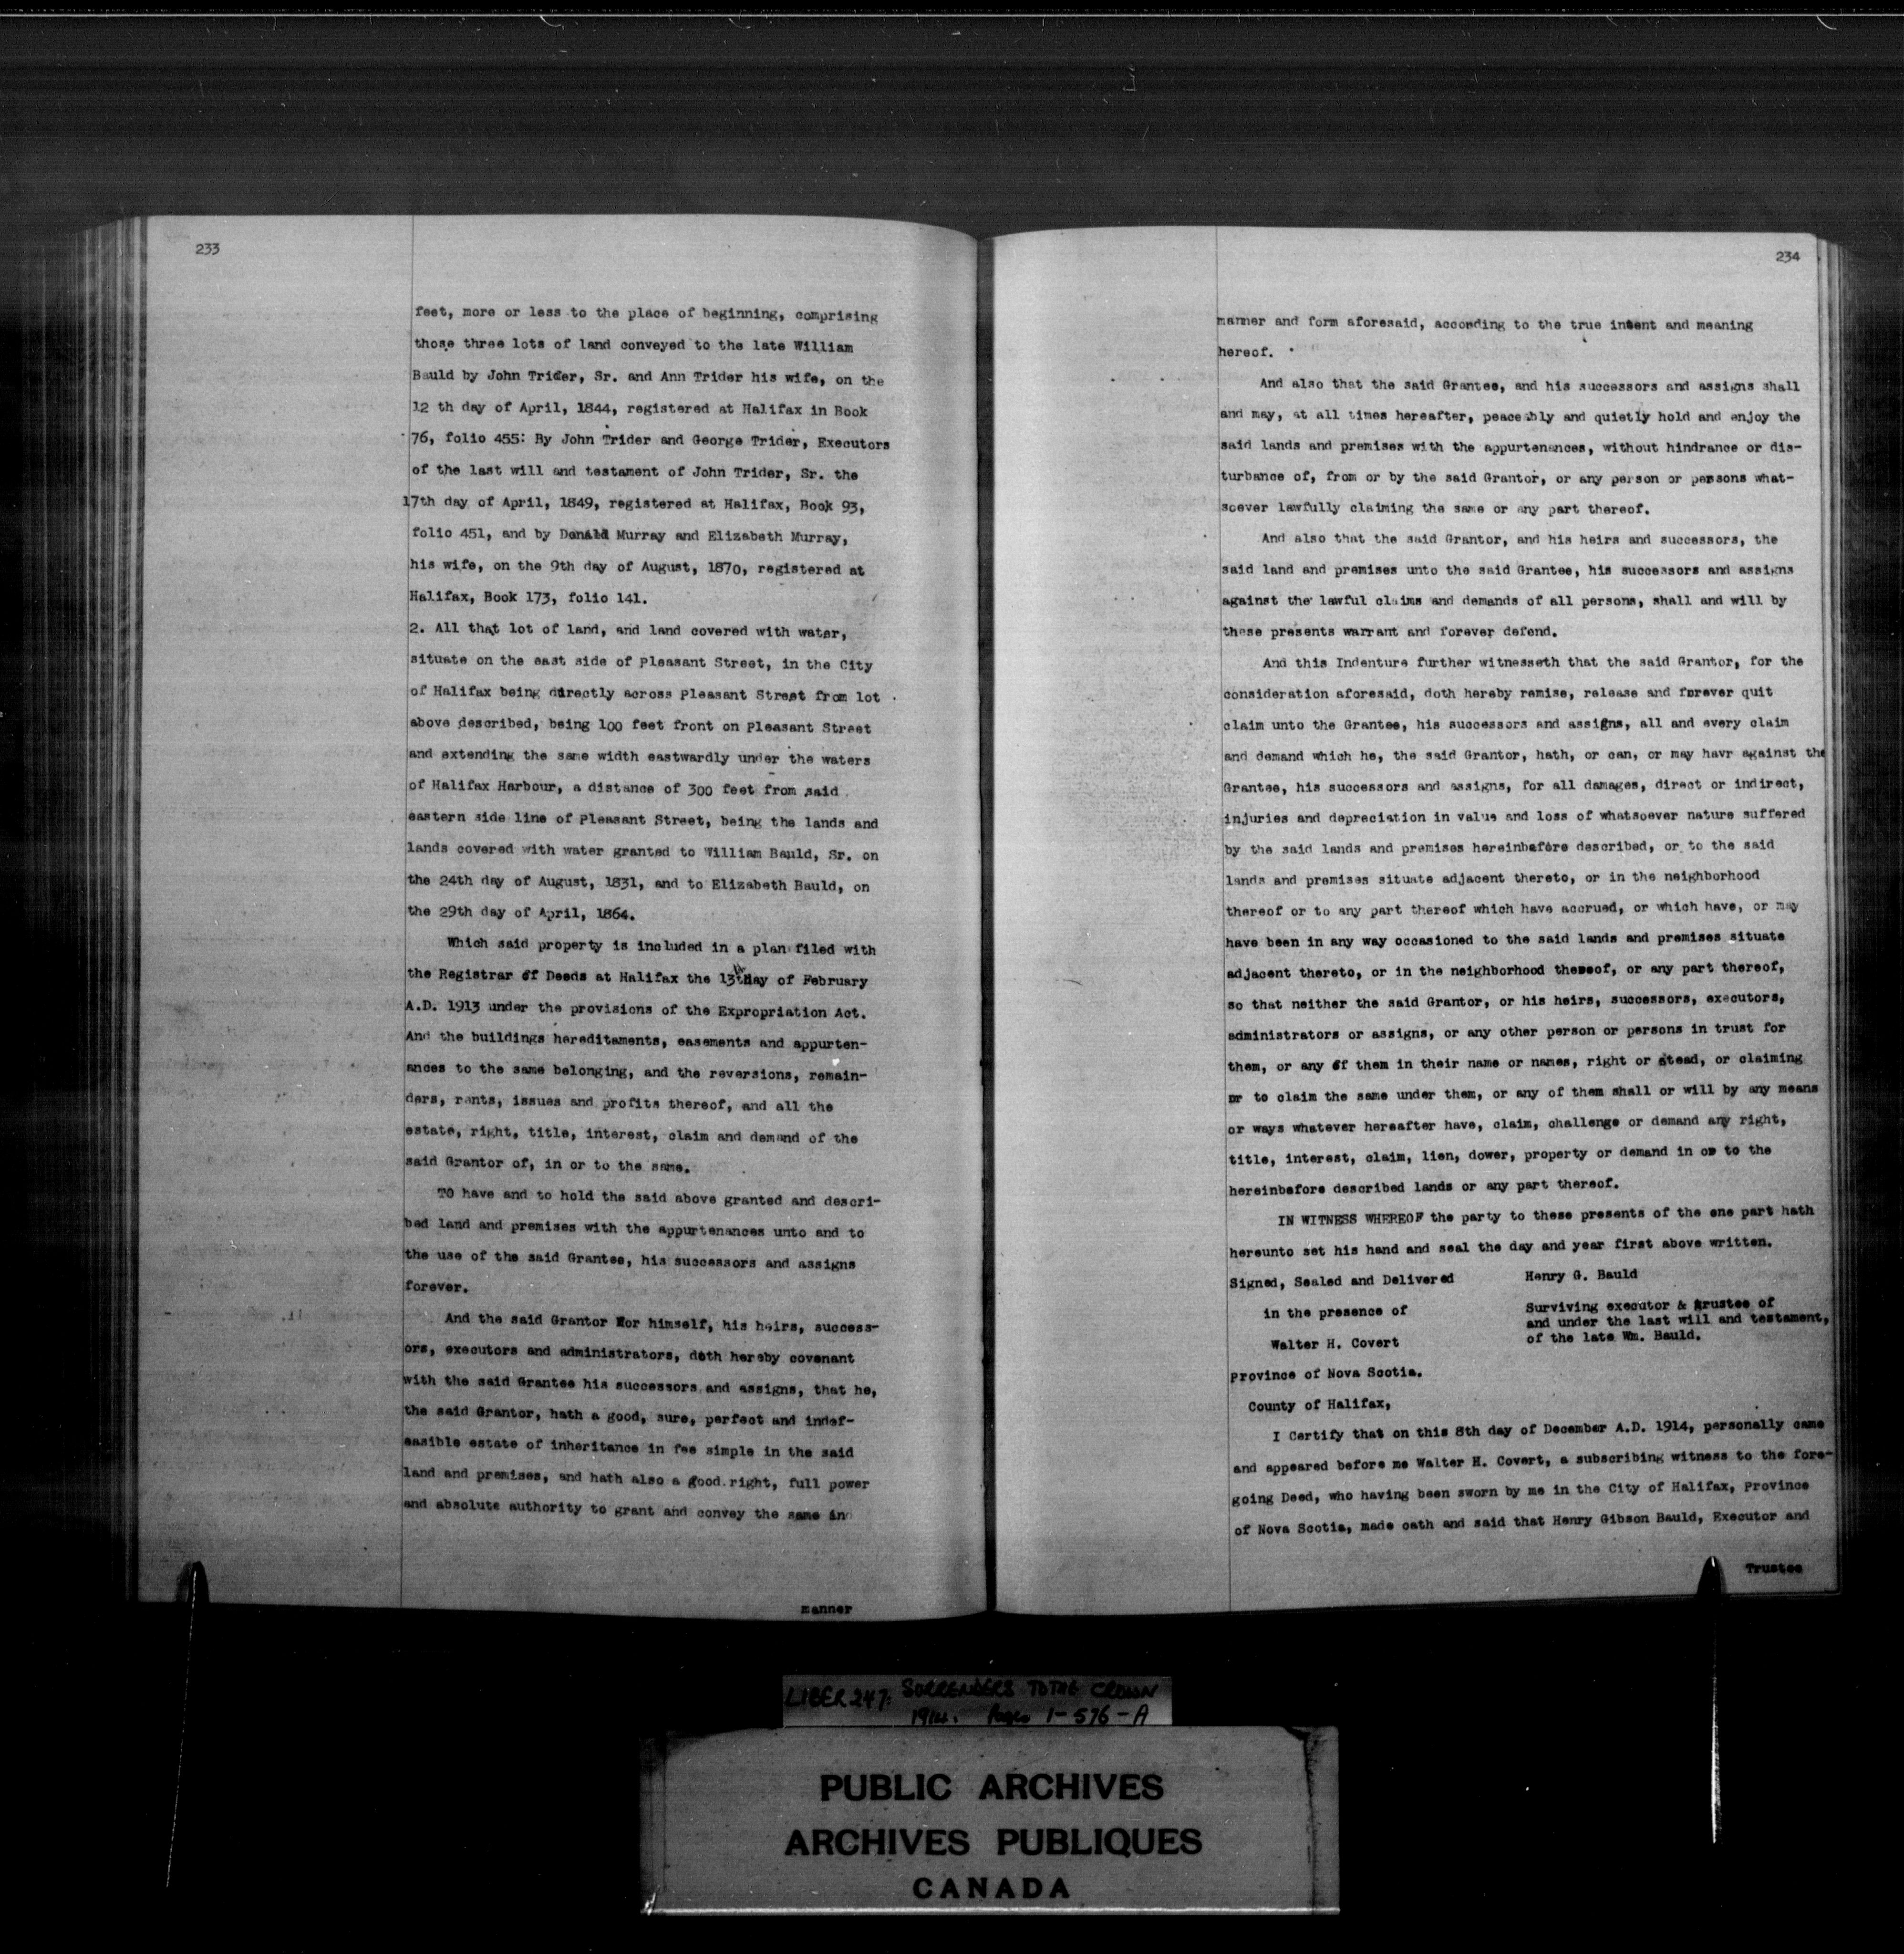 233
feet, more or less to the place of beginning, comprising
those three lots of land conveyed to the late William
Bauld by John Trider, Sr. and Ann Trider his wife, on the
12 th day of April, 1844, registered at Halifax in Book
76, folio 455: By John Trider and George Trider, Executors
of the last will and testament of John Trider, Sr. the
17th day of April, 1849, registered at Halifax, Book 93,
folio 451, and by Donald Murray and Elizabeth Murray,
his wife, on the 9th day of August, 1870, registered at
Halifax, Book 173, folio 141.
2. All that lot of land, and land covered with water,
situate on the east side of Pleasant Street, in the City
of Halifax being directly across Pleasant Street from lot
above described, being 100 feet front on Pleasant Street
and extending the same width eastwardly under the waters
of Halifax Harbour, a distance of 300 feet from said
eastern side line of Pleasant Street, being the lands and
lands covered with water granted to William Bauld, Sr. on
the 24th day of August, 1831, and to Elizabeth Bauld, on
the 29th day of April, 1864.
Which said property is included in a plan filed with
the Registrar of Deeds at Halifax the 13th day of February
A.D. 1913 under the provisions of the Expropriation Act.
And the buildings hereditaments, easements and appurten-
ances to the same belonging, and the reversions, remain-
ders, rents, issues and profits thereof, and all the
estate, right, title, interest, claim and demand of the
said Grantor of, in or to the same.
TO have and to hold the said above granted and descri-
bed land and premises with the appurtenances unto and to
the use of the said Grantee, his successors and assigns
forever.
And the said Grantor for himself, his heirs, success-
ors, executors and administrators, doth hereby covenant
with the said Grantee his successors and assigns, that he,
the said Grantor, hath a good, sure, perfect and indef-
easible estate of inheritance in fee simple in the said
land and premises, and hath also a good right, full power
and absolute authority to grant and convey the same in
manner
234
manner and form aforesaid, according to the true intent and meaning
hereof.
And also that the said Grantee, and his successors and assigns shall
and may, at all times hereafter, peaceably and quietly hold and enjoy the
said lands and premises with the appurtenances, without hindrance or dis-
turbance of, from or by the said Grantor, or any person or persons what-
soever lawfully claiming the same or any part thereof.
And also that the said Grantor, and his heirs and successors, the
said land and premises unto the said Grantee, his successors and assigns
against the lawful claims and demands of all persons, shall and will by
these presents warrant and forever defend.
And this Indenture further witnesseth that the said Grantor, for the
consideration aforesaid, doth hereby remise, release and forever quit
claim unto the Grantee, his successors and assigns, all and every claim
and demand which he, the said Grantor, hath, or can, or may havr against the
Grantee, his successors and assigns, for all damages, direct or indirect,
injuries and depreciation in value and loss of whatsoever nature suffered
by the said lands and premises hereinbefore described, or to the said
lands and premises situate adjacent thereto, or in the neighborhood
thereof or to any part thereof which have accrued, or which have, or may
have been in any way occasioned to the said lands and premises situate
adjacent thereto, or in the neighborhood thereof, or any part thereof,
so that neither the said Grantor, or his heirs, successors, executors,
administrators or assigns, or any other person or persons in trust for
them, or any of them in their name or names, right or stead, or claiming
or to claim the same under them, or any of them shall or will by any means
or ways whatever hereafter have, claim, challenge or demand any right,
title, interest, claim, lien, dower, property or demand in or to the
hereinbefore described lands or any part thereof.
IN WITNESS WHEREOF the party to these presents of the one part hath
hereunto set his hand and seal the day and year first above written.
Signed, Sealed and Delivered
in the presence of
Walter H. Covert
Henry G. Bauld
Surviving executor & trustee of
and under the last will and testament,
of the late Wm. Bauld.
Province of Nova Scotia.
County of Halifax,
I Certify that on this 8th day of December A.D. 1914, personally came
and appeared before me Walter H. Covert, a subscribing witness to the fore-
going Deed, who having been sworn by me in the City of Halifax, Province
of Nova Scotia, made oath and said that Henry Gibson Bauld, Executor and
Trustee
LIBER 247: SURRENDERS TO THE CROWN
1914. Pages 1-576-A
PUBLIC ARCHIVES
ARCHIVES PUBLIQUES
CANADA